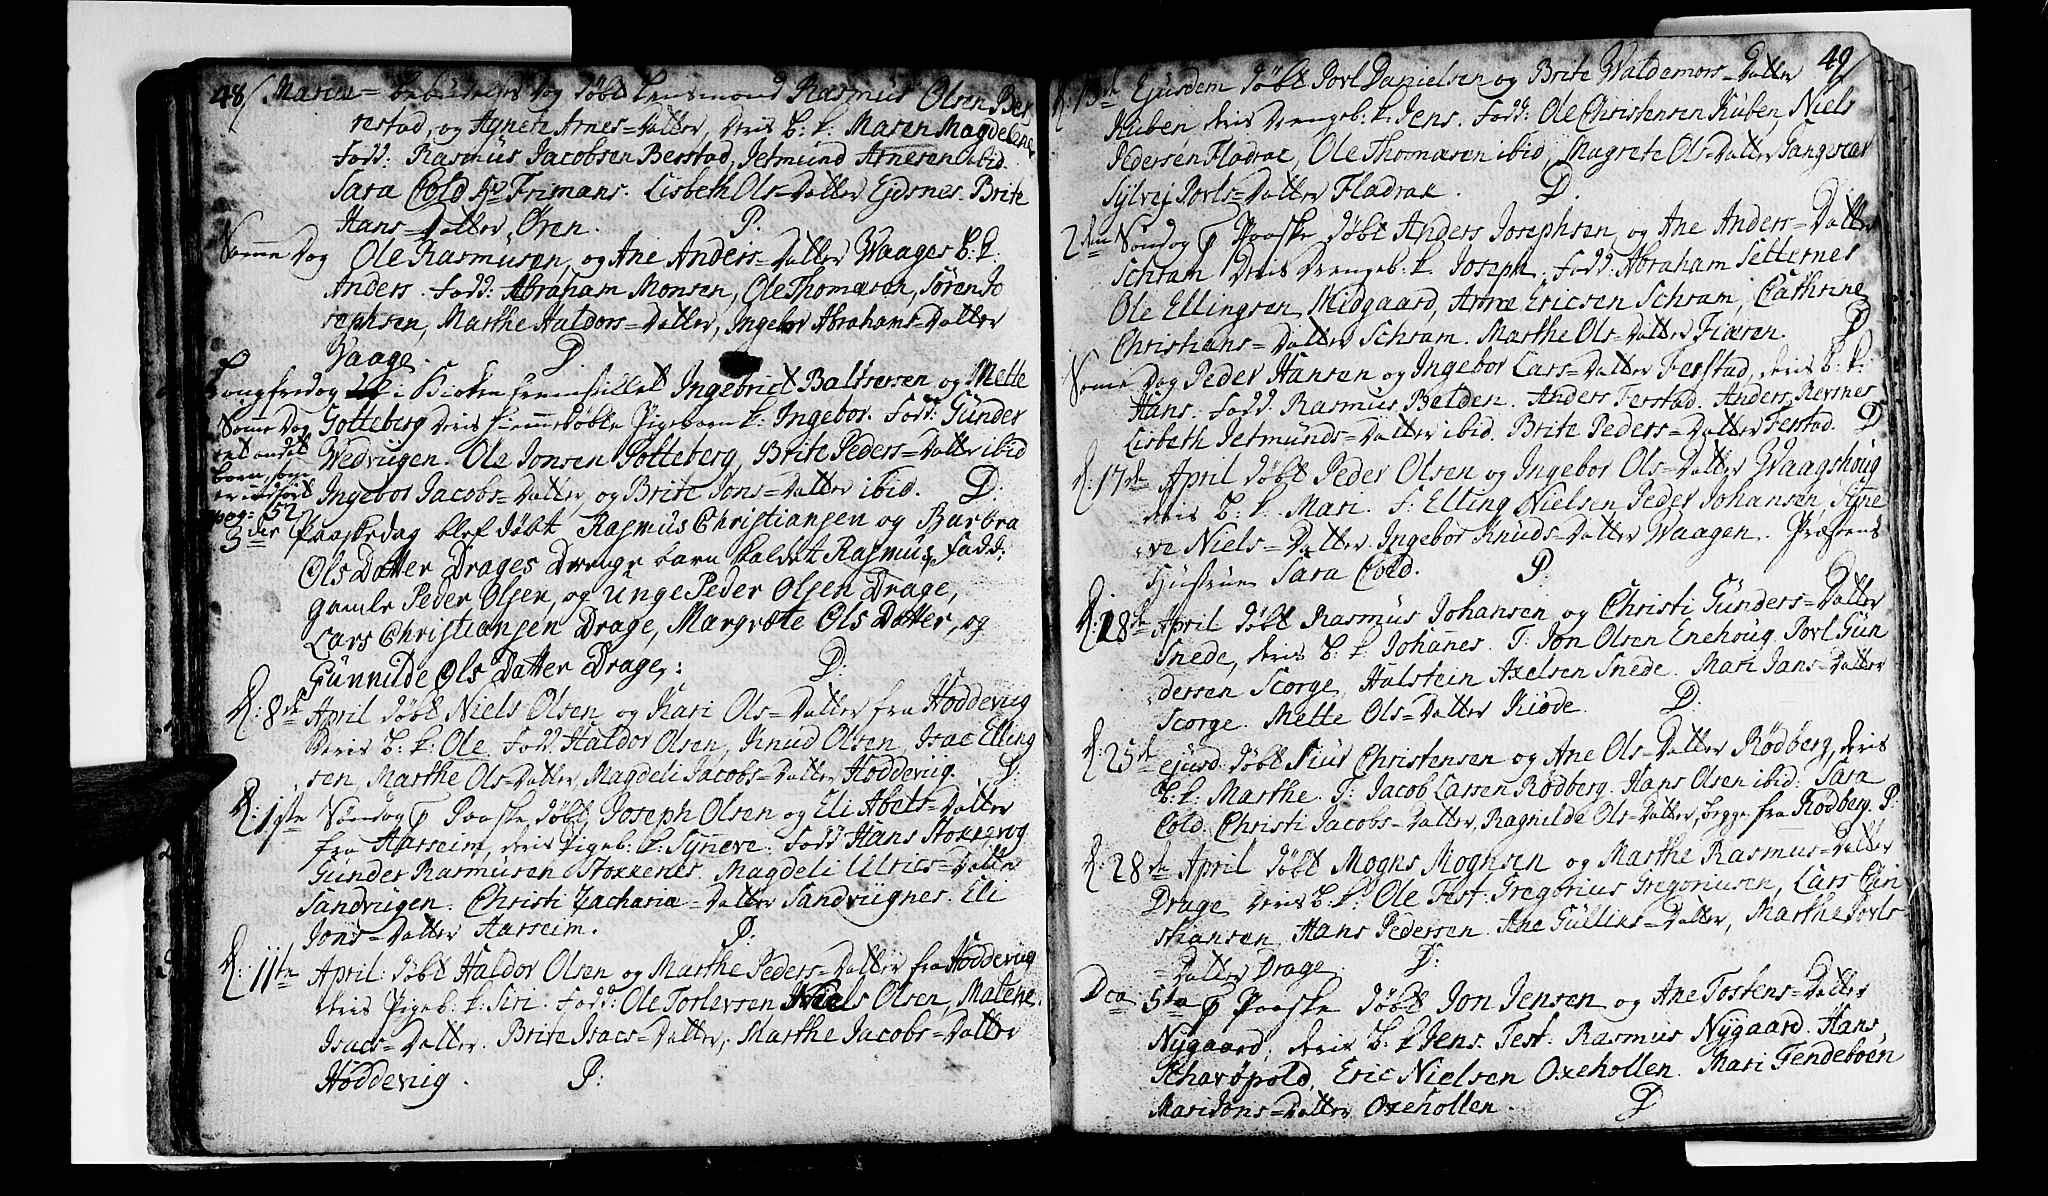 48/ Mariæ= bebudelses Dag døbt Lensmand Rasmus Olsen Ber
restad, og Agnete Arnes=Datter, deris b: k: Maren Magdelene
Fadd: Rasmus Jacobsen Berstad, Jetmund Arnesen ibid.
Sara Cold Hr Frimans. Lisbeth Ols=Datter Ejdsnes. Brite
Hans=Datter, Øren. D.
Samme Dag Ole Rasmusen, og Ane Anders=Datter Waages b: k.
Anders. Fadd: Abraham Monsen, Ole Thomæsen, Søren Jo
sephsen, Marthe Haldors=Datter, Ingebor Abrahams=Datter
Vaage. D.
Langfredag i Kirken fremstillet Ingebrict Baltsersen og Mette
Gotteberg deris hiemmedøbte Pigebarn k: Ingebor. Fadd: Gunder
Wedvigen. Ole Jonsen Gotteberg, Brite Peders=Datter ibid
Ingebor Jacobs=Datter og Brite Jons=Datter ibid. D:
Same Dag
ent andet
barn, som
er indført
pag: 52
3der Paaskedag blef døbt Rasmus Christiansen og Barbra
Ols Datter Drages Drenge barn kaldet Rasmus, Fadd:
gamle Peder Olsen, og unge Peder Olsen Drage,
Lars Christiansen Drage, Margrete Ols Datter, og
Gunnilde Ols Datter Drage,: D:
d: 8de April døbt Niels Olsen og Kari Ols=Datter fra Hoddevig
deris b: k: Ole. Fadd: Haldor Olsen, Knud Olsen, Isac Elling
sen, Marthe Ols=Datter, Magdeli Jacobs=Datter Hoddevig. D:
d: 1ste Søndag p Paaske døbt Joseph Olsen og Eli Abels=Datter
fra Aarseim, deris Pigeb: k: Synneve. Fadd: Hans Stokkevog
Gunder Rasmusen Stokkenes. Magdeli Ulrics=Datter
Sandvigen. Christi Zacharia=Datter Sandvignes. Eli
Jons=Datter Aarseim. D:
d: 11te April: døbt Haldor Olsen og Marthe Peders=Datter fra Hoddevig
deris Pigeb: k: Siri. Fadd: Ole Torlevsen Niels Olsen, Malene
Isacs=Datter. Brite Isacs=Datter, Marthe Jacobs=Datter
Hoddevig. D:
49/
d: 13de Ejusdem døbt Povl Danielsen og Brite Waldemors=Datter
Kuben deris Drengeb: k: Jens. Fadd: Ole Christensen Kuben, Niels
Pedersen Fladrae, Ole Thomæsen ibid, Magrete Ols=Datter Tangeræt
Sylvej Povls=Datter Fladrae. D.
2den Søndag p Paaske døbt Anders Josephsen og Ane Anders=Datter
Schram deris Drengeb: k. Joseph. Fadd: Abraham Setternes
Ole Ellingsen Midgaard, Arne Ericsen Schram, Cathrine
Christians=Datter Schram. Marthe Ols=Datter Fiæren. D
Same Dag Peder Hansen og Ingebor Lars=Datter Ferstad, deris b: k:
Hans. Fadd: Rasmus Belden. Anders Ferstad. Anders Revsnes
Lisbeth Jetmunds=Datter ibid. Brite Peders=Datter Ferstad. D
d: 17de April døbt Peder Olsen og Ingebor Ols=Datter Waagshoug
deris b: k. Mari. F: Elling Nielsen, Peder Johansen, Synne
ve Niels=Datter. Ingebor Knuds=Datter Waagen. Præstens
Hustrue Sara Cold. D:
d: 18de April døbt Rasmus Johansen og Christi Gunders=Datter
Snede, deris b: k. Johannes. F: Jon Olsen Enehoug. Povl Gun
dersen Scorge, Halstein Axelsen Snede. Mari Jans=Datter
Scorge. Mette Ols=Datter Kiøde. D.
d: 25de ejusd: døbt Siur Christensen og Ane Ols=Datter Rødberg, deris
b: k: Marthe. F: Jacob Larsen Rødberg. Hans Olsen ibid: Sara
Cold. Christi Jacobs=Datter, Ragnilde Ols=Datter, begge fra Rødberg. D:
d: 28de April døbt Mogns Mognsen og Marthe Rasmus=Datter
Drage deris b: k: Ole Test: Gregorius Gregoriusen, Lars Cari
stiansen, Hans Pedersen. Ane Gullins=Datter, Marthe Povls
=Datter Drage. D:
Dca 5ta p Paaske døbt Jon Jensen og Ane Tostens=Datter
Nygaard, deris b: k Jens. Test: Rasmus Nygaard. Hans
Scharøpold, Eric Nielsen Oxehollen. Mari Tendeboen
Mari Jons=Datter Oxehollen. D